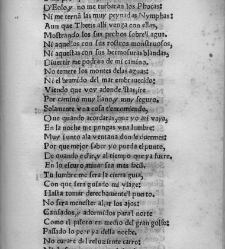 D'Bolo, no me turbaran los Phocas:
Ni me ternā las muy peynadas Nymphas:
Aun que Thetis alli venga con ellas,
Mostrando los sus pechos sobre el agua.
Ni aquellos con sus rostros monstruosos,
Ni aquellas con sus hermosuras blandas,
Diuertir me podran de mi camino.
No temere los montes delas aguas:
Ni el bramido del mar embrauecido:
Viendo que voy adonde
Por camino muy llano, y muy seguro,
Solamente vna cosa te encomiendo,
Que quando acordares, que yo ni vaya,
En la noche me pongas vna lumbre:
Muy junto ala ventana don de duermes:
Por que mejor saber yo pueda el punto,
De quando e dir, al tiempo que ya fuere,
En lo escuro mirar sea mas facil.
Tu lumbre me sera la cierta guia,
Con que sera guiado mi viage:
Hasta tomar derechamente puerto,
No sera menester al, ni los ojos:
Cansados, e adormidos para el norte
Como el piloto en medio del gran golfo:
Passado lo peor ya desta noche.
No curare del reluziente carro: